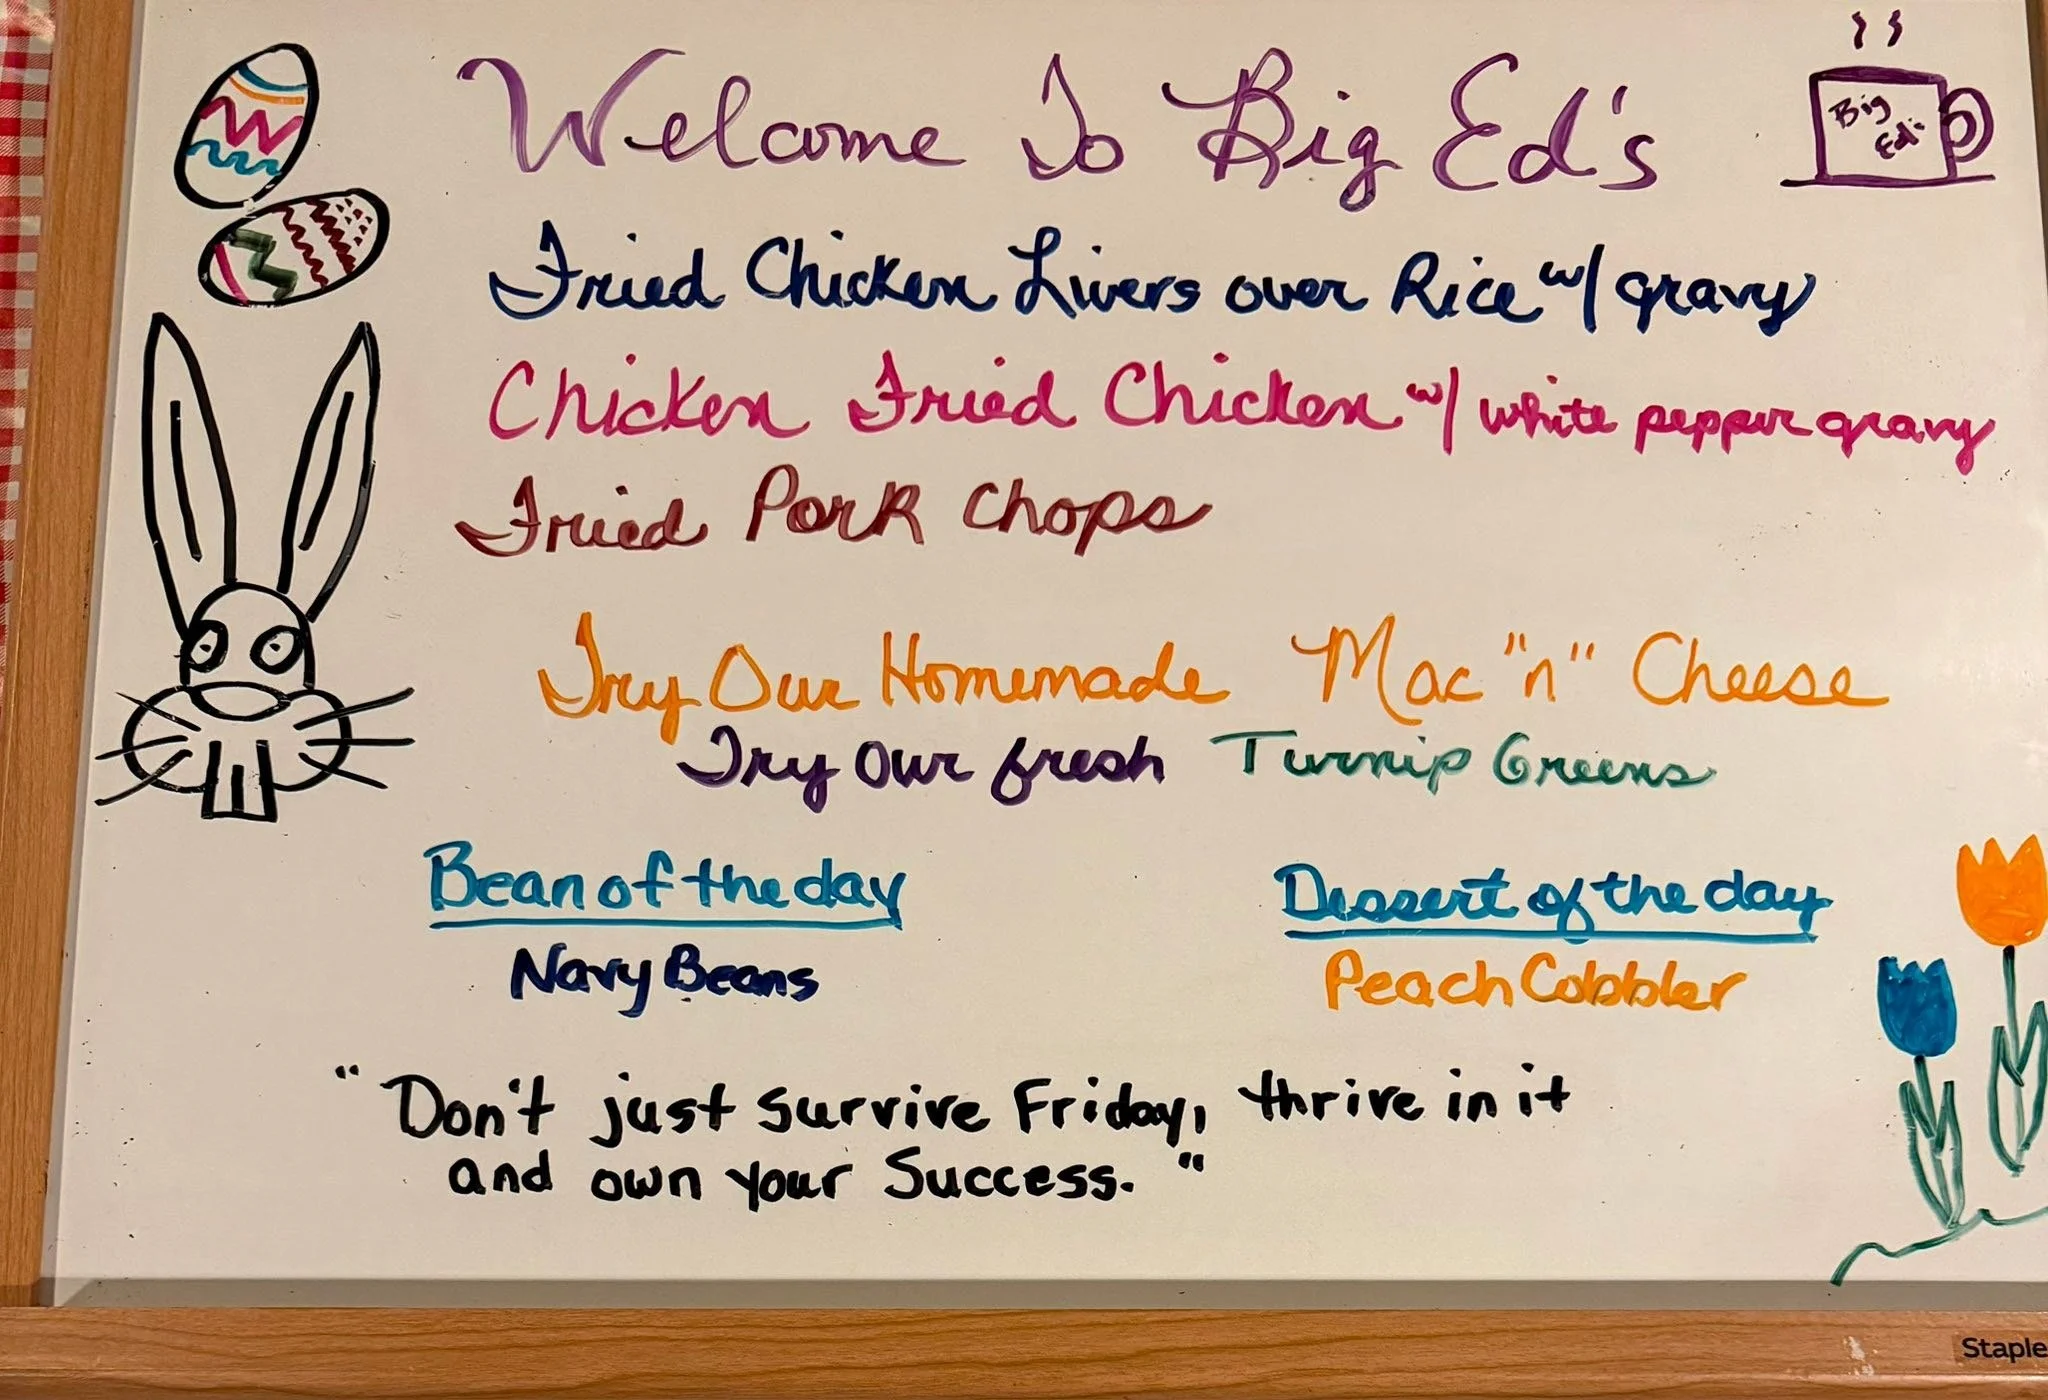 Welcome To Big Ed's
Big
Ed's
Fried Chicken Livers over Rice w/ gravy
Chicken Fried Chicken w/ white pepper gravy
Fried Pork Chops
Try Our Homemade Mac "n" Cheese
Try Our fresh Turnip Greens
Bean of the day
Navy Beans
Dessert of the day
Peach Cobbler
"Don't just survive Friday, thrive in it
and own your Success."
Staple